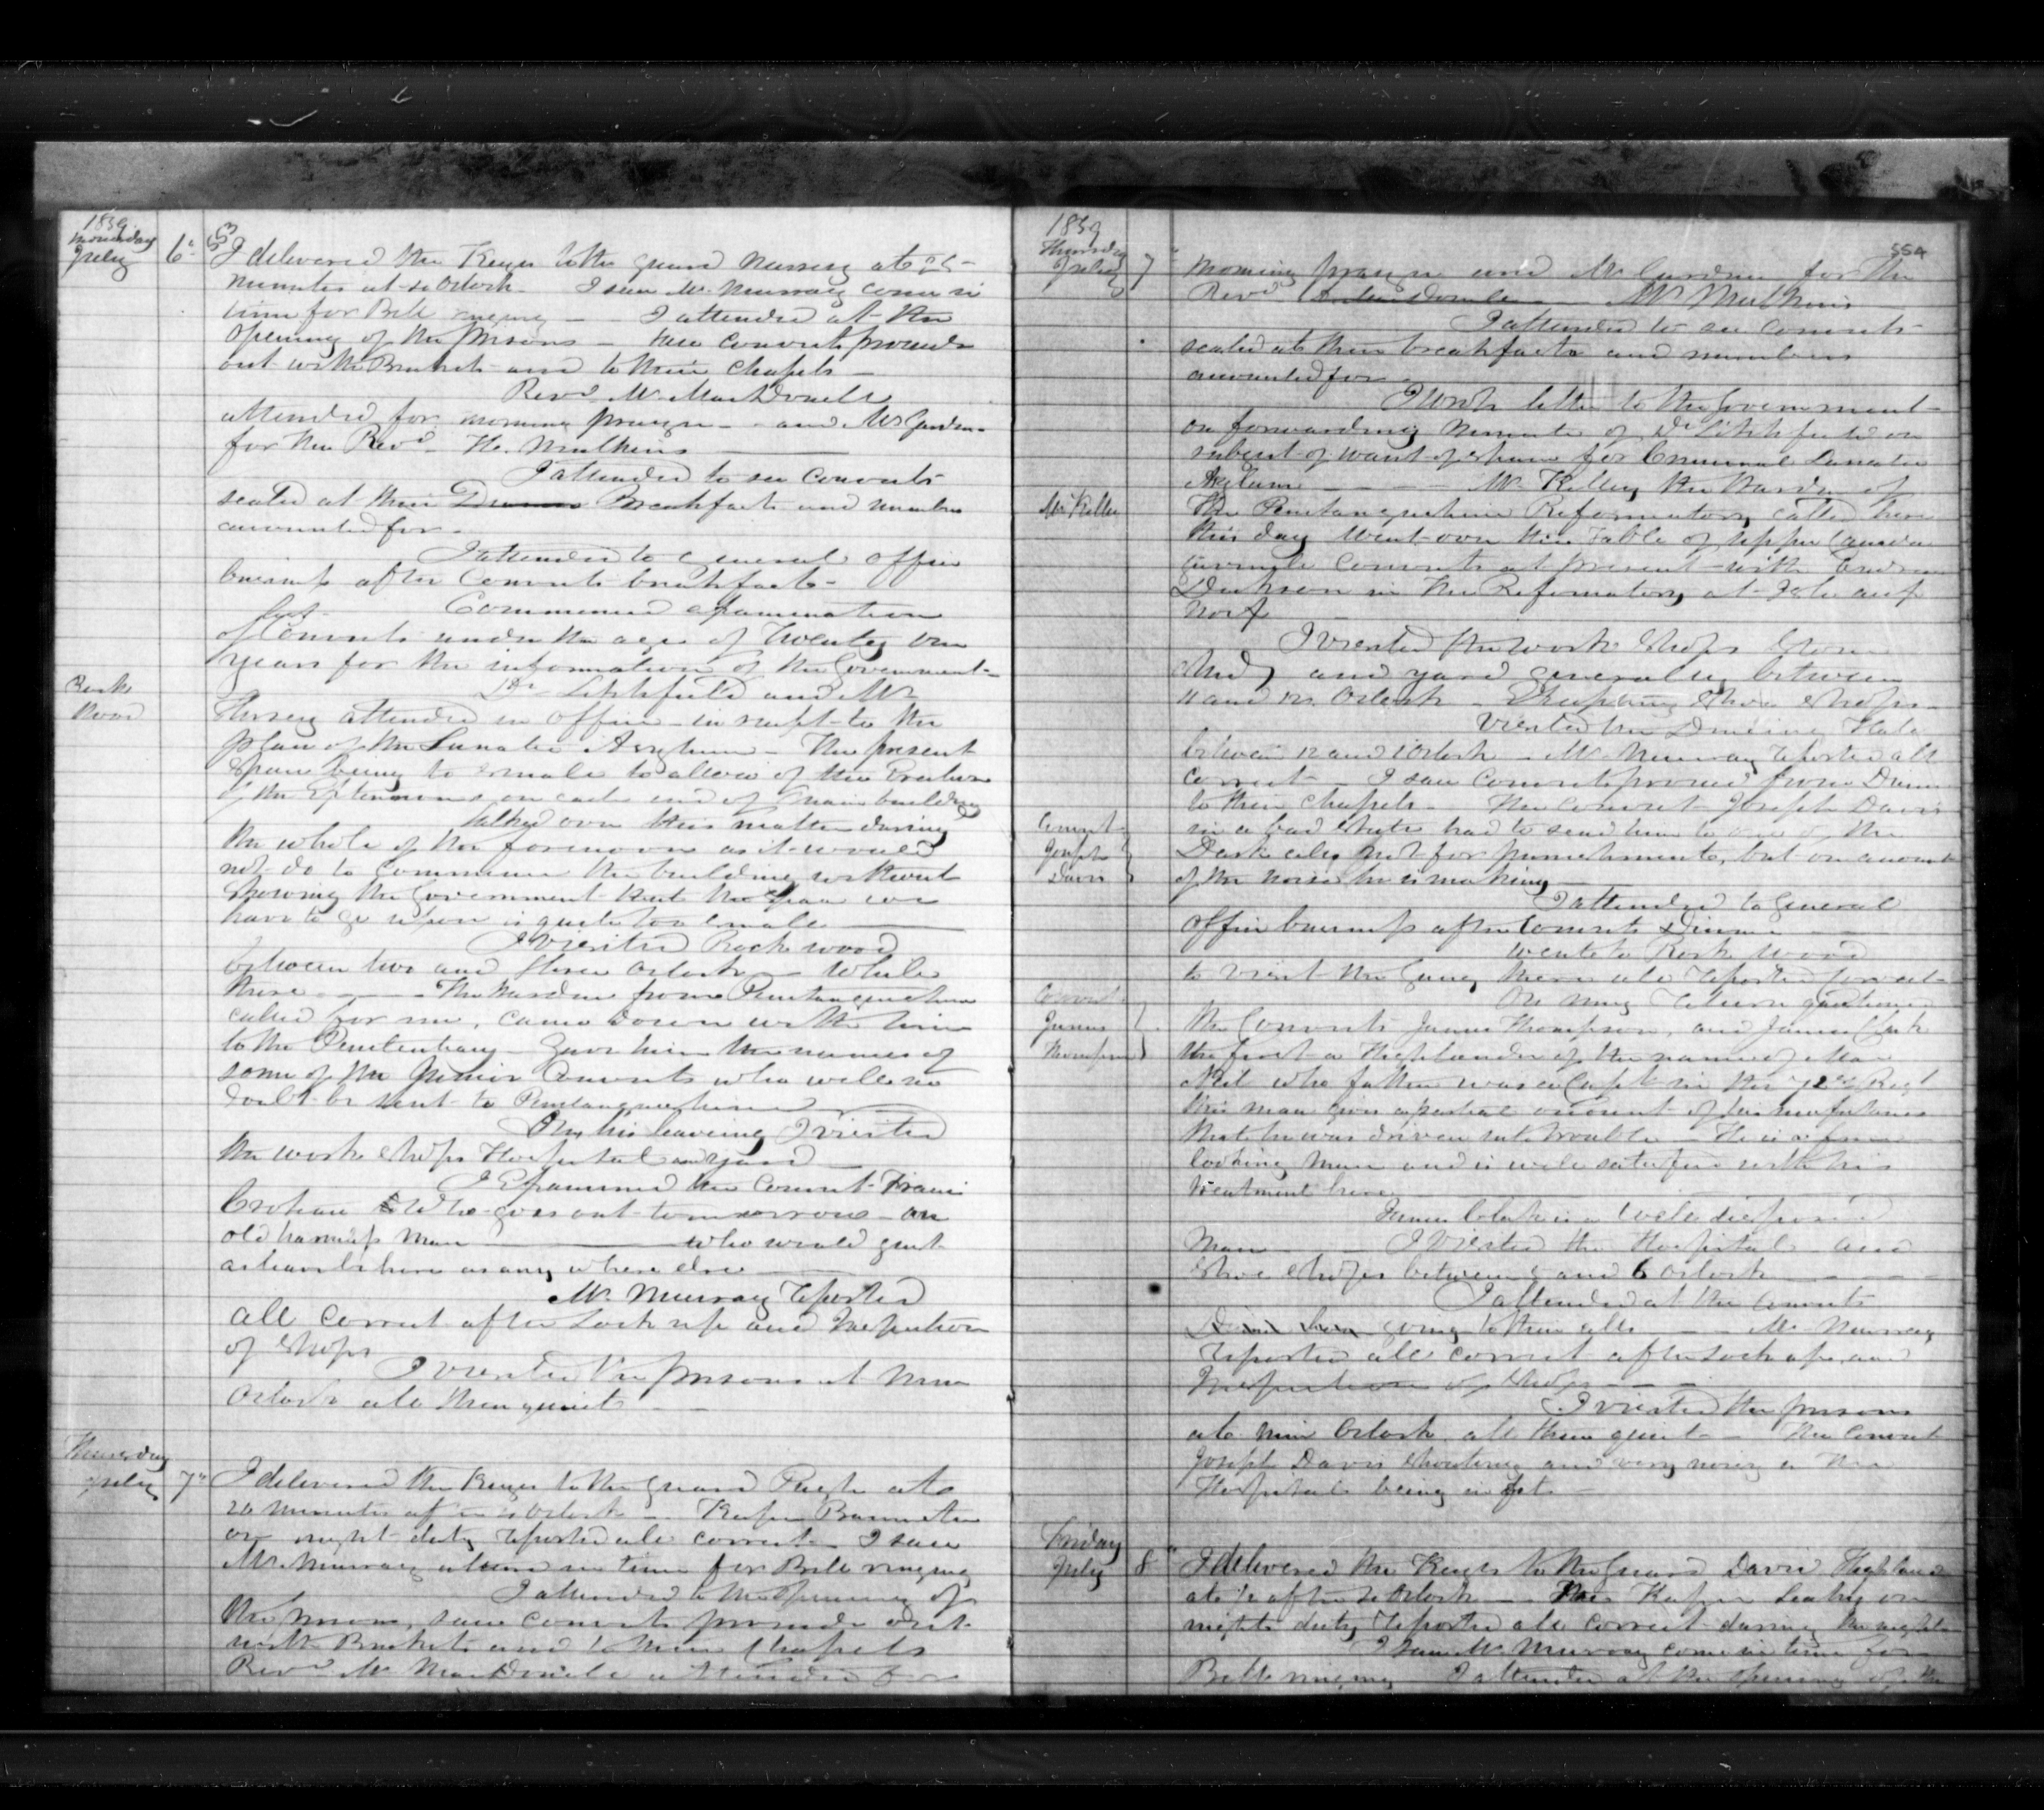 1859
Monday
July 6
I delivered the Keys to the guard Nursey at 25
minutes at Oclock I saw Mr Murray come in
time for Bell ringing I attended at the
opening of the prisons - saw convicts proceed
out with Buckets and to their Chapels -
Revd Mr MacDonell
attended for morning prayer - and Mr Gardner
for the Revd H. Mulkins
I attended to see convicts
seated at their Dinner Breakfasts and numbers
accounted for -
I attended to general office
business after Convicts breakfasts -
Commenced examination
list
of Convicts under the age of Twenty one
years for the information of the Government -
Rock
Wood
Dr Litchfield and Mr
Horsey attended in office - in respt to the
plan of the Lunatic Asylum - The present
space being to small to allow of the
of the on each end of main building
talked over this matter during
the whole of the forenoon as it would
not do to commence the building without
showing the Government that the space we
have to go upon is quite too small
I visited Rockwood
between two and three Oclock - While
there - The Warden from Penetanguishene
called for me, came down with him
to the Penitentiary - Gave him the names of
some of the Junior Convicts who will no
doubt be sent to Penetanguishene
On his leaving I visited
the work shops Hospital and yard
I Examined the Convict Francis
who goes out tomorrow - an
old harmless man who would
as any where else
Mr Murray reported
all correct after Lock up and Inspection
of shops
I visited the prisons at nine
Oclock all then quiet
Thursday
July 7th
I delivered the Keys to the guard Pugh at
20 minutes Oclock - Keeper Bannister
on night duty reported all correct - I saw
Mr Murray in time for Bell ringing
I attended to the opening of
the prisons, saw convicts proceed out
with Buckets and to their Chapels
Revd Mr MacDonell attended for
554
1859
Thursday
July 7
morning prayer and Mr Gardner for the
Revd Mr Mulkins
I attended to see convicts
seated at their breakfasts and numbers
accounted for -
I wrote letter to the Government -
on forwarding minute of Dr Litchfield on
subject of want of space for Criminal Lunatic
Asylum - Mr Kelly the Warden of
Mr Kelly
The Penetanguishene Reformatory called here
this day went over the Table of Upper Canada
juvenile Convicts at present with Andrew
Dickson in the Reformatory at Isle aux
Noix
I visited the work shops Stone
Shed and yard generally between
11 and 12 Oclock - Shoe Shops -
Visited the Dining Hall
between 12 and 1 Oclock - Mr Murray reported all
correct - I saw convicts proceed from Dinner
to their Chapels - The Convict Joseph Davis
Convict
Joseph
Davis
in a bad state had to send him to one of the
Dark cells not for punishment, but on account
of the noise he is making
I attended to General
office business after Convicts Dinner
went to Rock wood
to visit the Gang there all reported correct -
On my return
Convict
James
Thompson
the Convicts James Thompson, and James Clark
the first a Highlander of the name of Mac
Neil who father was a Capt in the 72nd Regt
this man gives a partial account of his misfortunes
that he was driven into trouble - He is a fine
looking man and is well satisfied with his
treatment here
James Clark is a well disposed
man I visited the Hospital and
Shoe shops between 5 and 6 Oclock
I attended at the convicts
going to their cells Mr Murray
reported all correct after Lock up and
Inspection of Shops
I visited the prisons
at nine Oclock all then quiet - The Convict
Joseph Davis shouting and very noisy in the
Hospital being in fits -
Friday
July 8
I delivered the Keys to the Guard David Highland
at 1/2 after Oclock The Keeper Leahy on
nights duty reported all correct during the night -
I saw Mr Murray come in time for
Bell ringing I attended at the opening of the